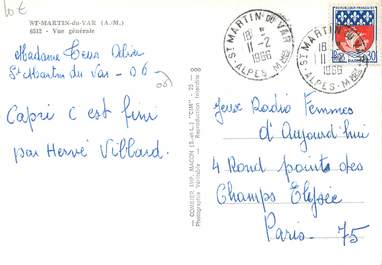 10€
ST-MARTIN-du-VAR (A.-M.)
6512 - Vue générale
Madame
St Martin du Var - 06 -
Capri C'est fini
par Hervé Villard.
COMBIER IMP. MACON (S.-et-L.) "CIM"
Photographie Véritable - Reproduction interdite
ST MARTIN DU VAR
18 H
11-2
1966
ALPES-MMES
ST MARTIN DU VAR
18
11
1966
ALPES-MMES
REPUBLIQUE FRANÇAISE
0,30
Jeux Radio Femmes
d'Aujourd'hui
4 Rond points des
Champs Elysée
Paris - 75